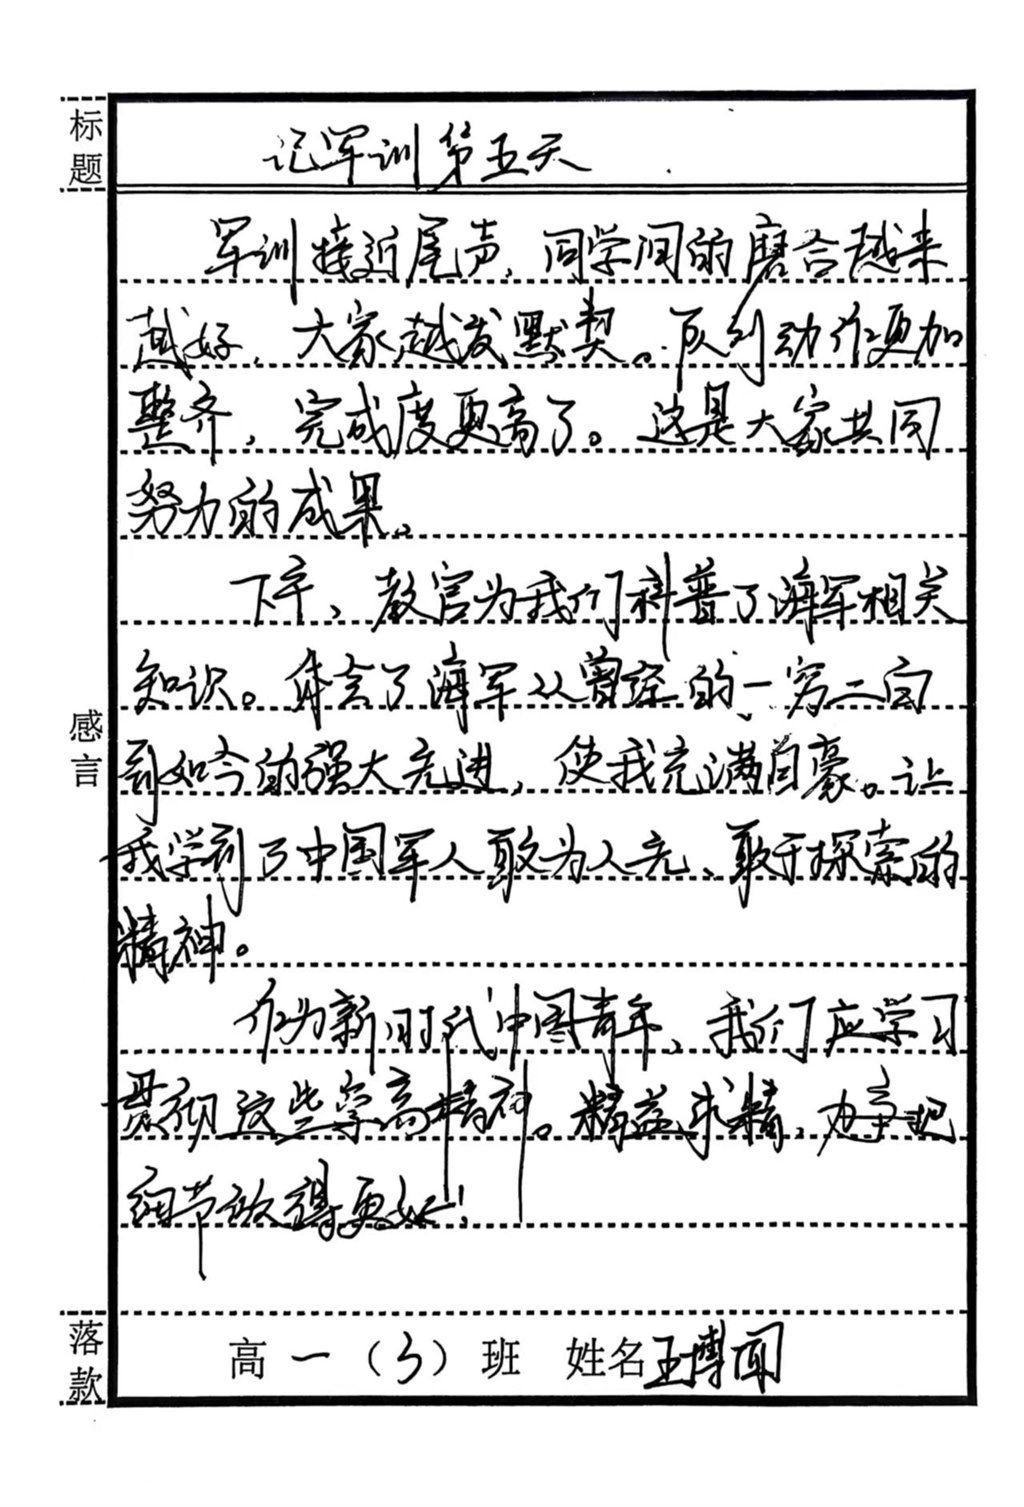 标题
记军训第五天
军训接近尾声，同学间的磨合越来
越好，大家越发默契。队列动作更加
整齐，完成度更高了。这是大家共同
努力的成果。
下午，教官为我们科普了海军相关
知识。体会了海军从曾经的一穷二白
到如今的强大先进，使我充满自豪。让
我学到了中国军人敢为人先、敢于探索的
精神。
感言
作为新时代中国青年，我们应学习
贯彻这些崇高精神。精益求精，力争把
细节做得更好！
落款
高一（3）班 姓名王博闻